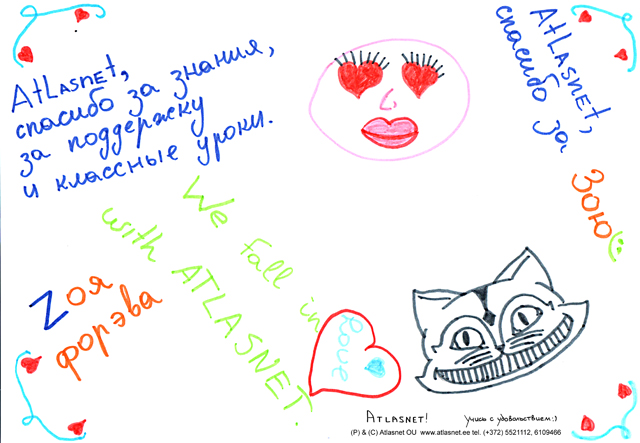 AtLASNET,
спасибо за знания,
за поддержку
и классные уроки.
AtLASNET,
спасибо за
Зою
We fall in
love
with ATLASNET.
Zоя
форэва
ATLASNET!
учись с удовольствием:)
(P) & (C) Atlasnet OU www.atlasnet.ee tel. (+372) 5521112, 6109466